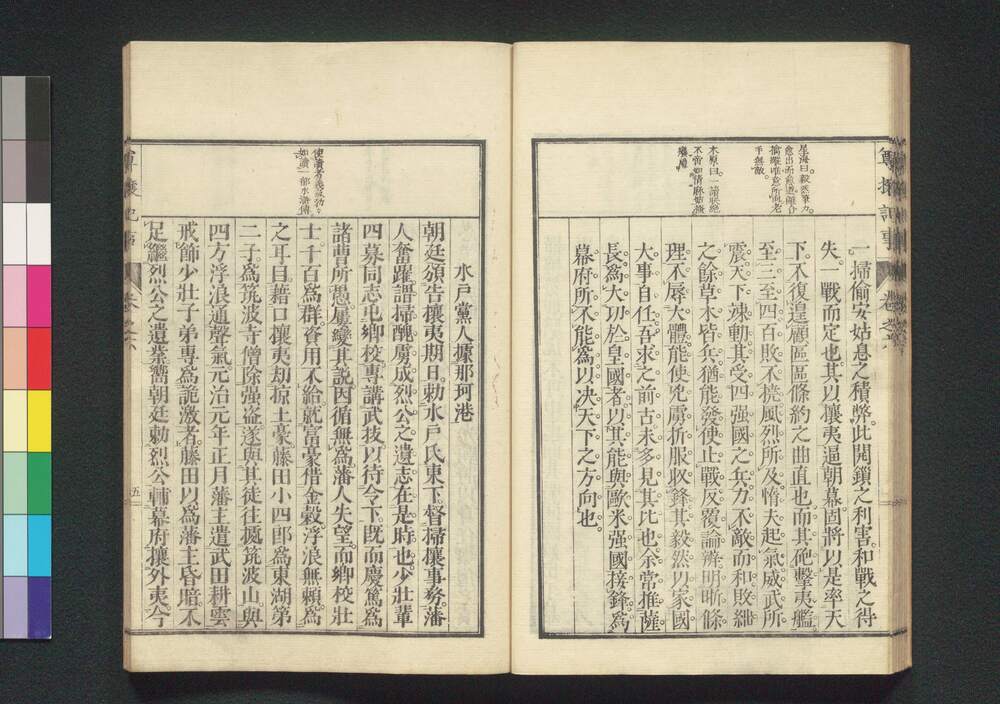 星海曰毅然筆力
愈出而愈遒開合
擒縱唯意所向老
手無敵
木原曰一諸壯絕
不啻如倩麻姑搔
癢癢
一掃偷安姑息之積弊此閱鎖之利害和戰之得
失一戰而定也其以攘夷逼朝幕固將以是率天
下不復遑顧區區條約之曲直也而其砲擊夷艦
至三至四百敗不撓風烈所及惰夫起氣威武所
震天下竦動其受四强國之兵力不敵而和敗紲
之餘草木皆兵猶能發使止戰反覆論辨明晣條
理不辱大體能使兇虜折服收鋒其毅然以家國
大事自任吾求之前古未多見其比也余常推薩
長爲大功於皇國者以其能與歐米强國接鋒爲
幕府所不能爲以决天下之方向也
尊攘記事
卷之六
使讀者義氣勃勃
如讀一部水滸傳
水戶黨人據那珂港
朝廷頒告攘夷期日勅水戶氏東下督掃攘事務藩
人奮躍謂掃醜虜成烈公之遺志在是時也少壯輩
四募同志屯鄉校專講武技以待令下既而慶篤爲
諸曹所愚屢變其説因循無爲藩人失望而鄉校壯
士千百爲群資用不給就富豪借金穀浮浪無賴爲
之耳目藉口攘夷劫掠土豪藤田小四郎爲東湖第
二子爲筑波寺僧除强盗遂與其徒往據筑波山與
四方浮浪通聲氣元治元年正月藩主遣武田耕雲
戒飭少壯子弟專爲詭激者藤田以爲藩主昏暗不
足繼烈公之遺業嚮朝廷勅烈公輔幕府攘外夷今
尊攘記事
卷之六
五